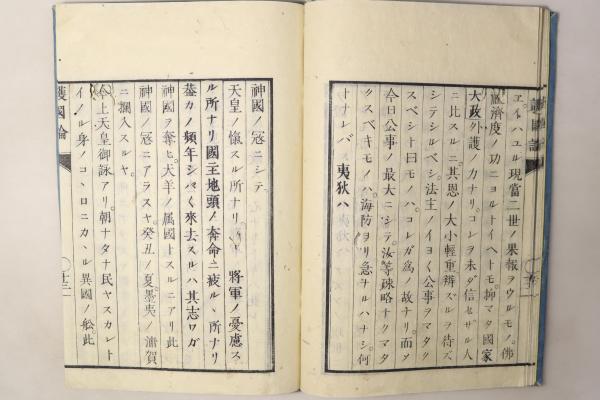 エ。イハユル現當二世ノ果報ヲウルモノ。佛
濟度ノ功ニヨルトイヘトモ。抑マタ國家
大政外護ノ力ナリ。コレヲ未タ信セサル人
ニ比スルニ其恩ノ大小輕重辨スルヲ待ズ
シテシルベシ。法主ノイヨく公事ヲマタク
スベシト曰モノハ。コレガ為ノ故ナリ。而ソ
今日公事ノ最大ニシテ。汝等疎略ナクマタ
クスベキモノハ。海防ヨリ急ナルハナシ。何
トナレバ 夷狄ハ
神國ノ冦ニシテ
天皇ノ愾スル所ナリ。 將軍ノ憂慮ス
ル所ナリ國主地頭ノ奔命ニ疲ル丶所ナリ
蓋カノ頻年シバく來去スルハ其志ワガ
神國ヲ奪ヒ。犬羊ノ属國トスルニアリ此
神國ノ冦ニアラスヤ。癸丑ノ夏。墨夷ノ浦賀
ニ攔入スルヤ。
今上天皇御詠アリ。朝ナタナ民ヤスカレト
イノル身ノコヽロニカヽル異國ノ舩此
護國論
十三